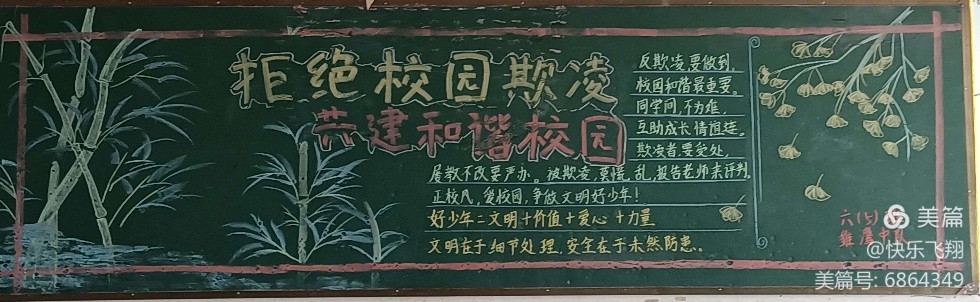 拒绝校园欺凌
共建和谐校园
反欺凌,要做到,
校园和谐最重要。
同学间,不为难,
互助成长情谊连。
欺凌者,要受处,
屡教不改要严办。被欺凌,莫慌乱,报告老师来评判。
正校风,爱校园,争做文明好少年!
好少年=文明+价值+爱心+力量
文明在于细节处理,安全在于未然防患。
六(5)
美篇
@快乐飞翔
美篇号: 6864349